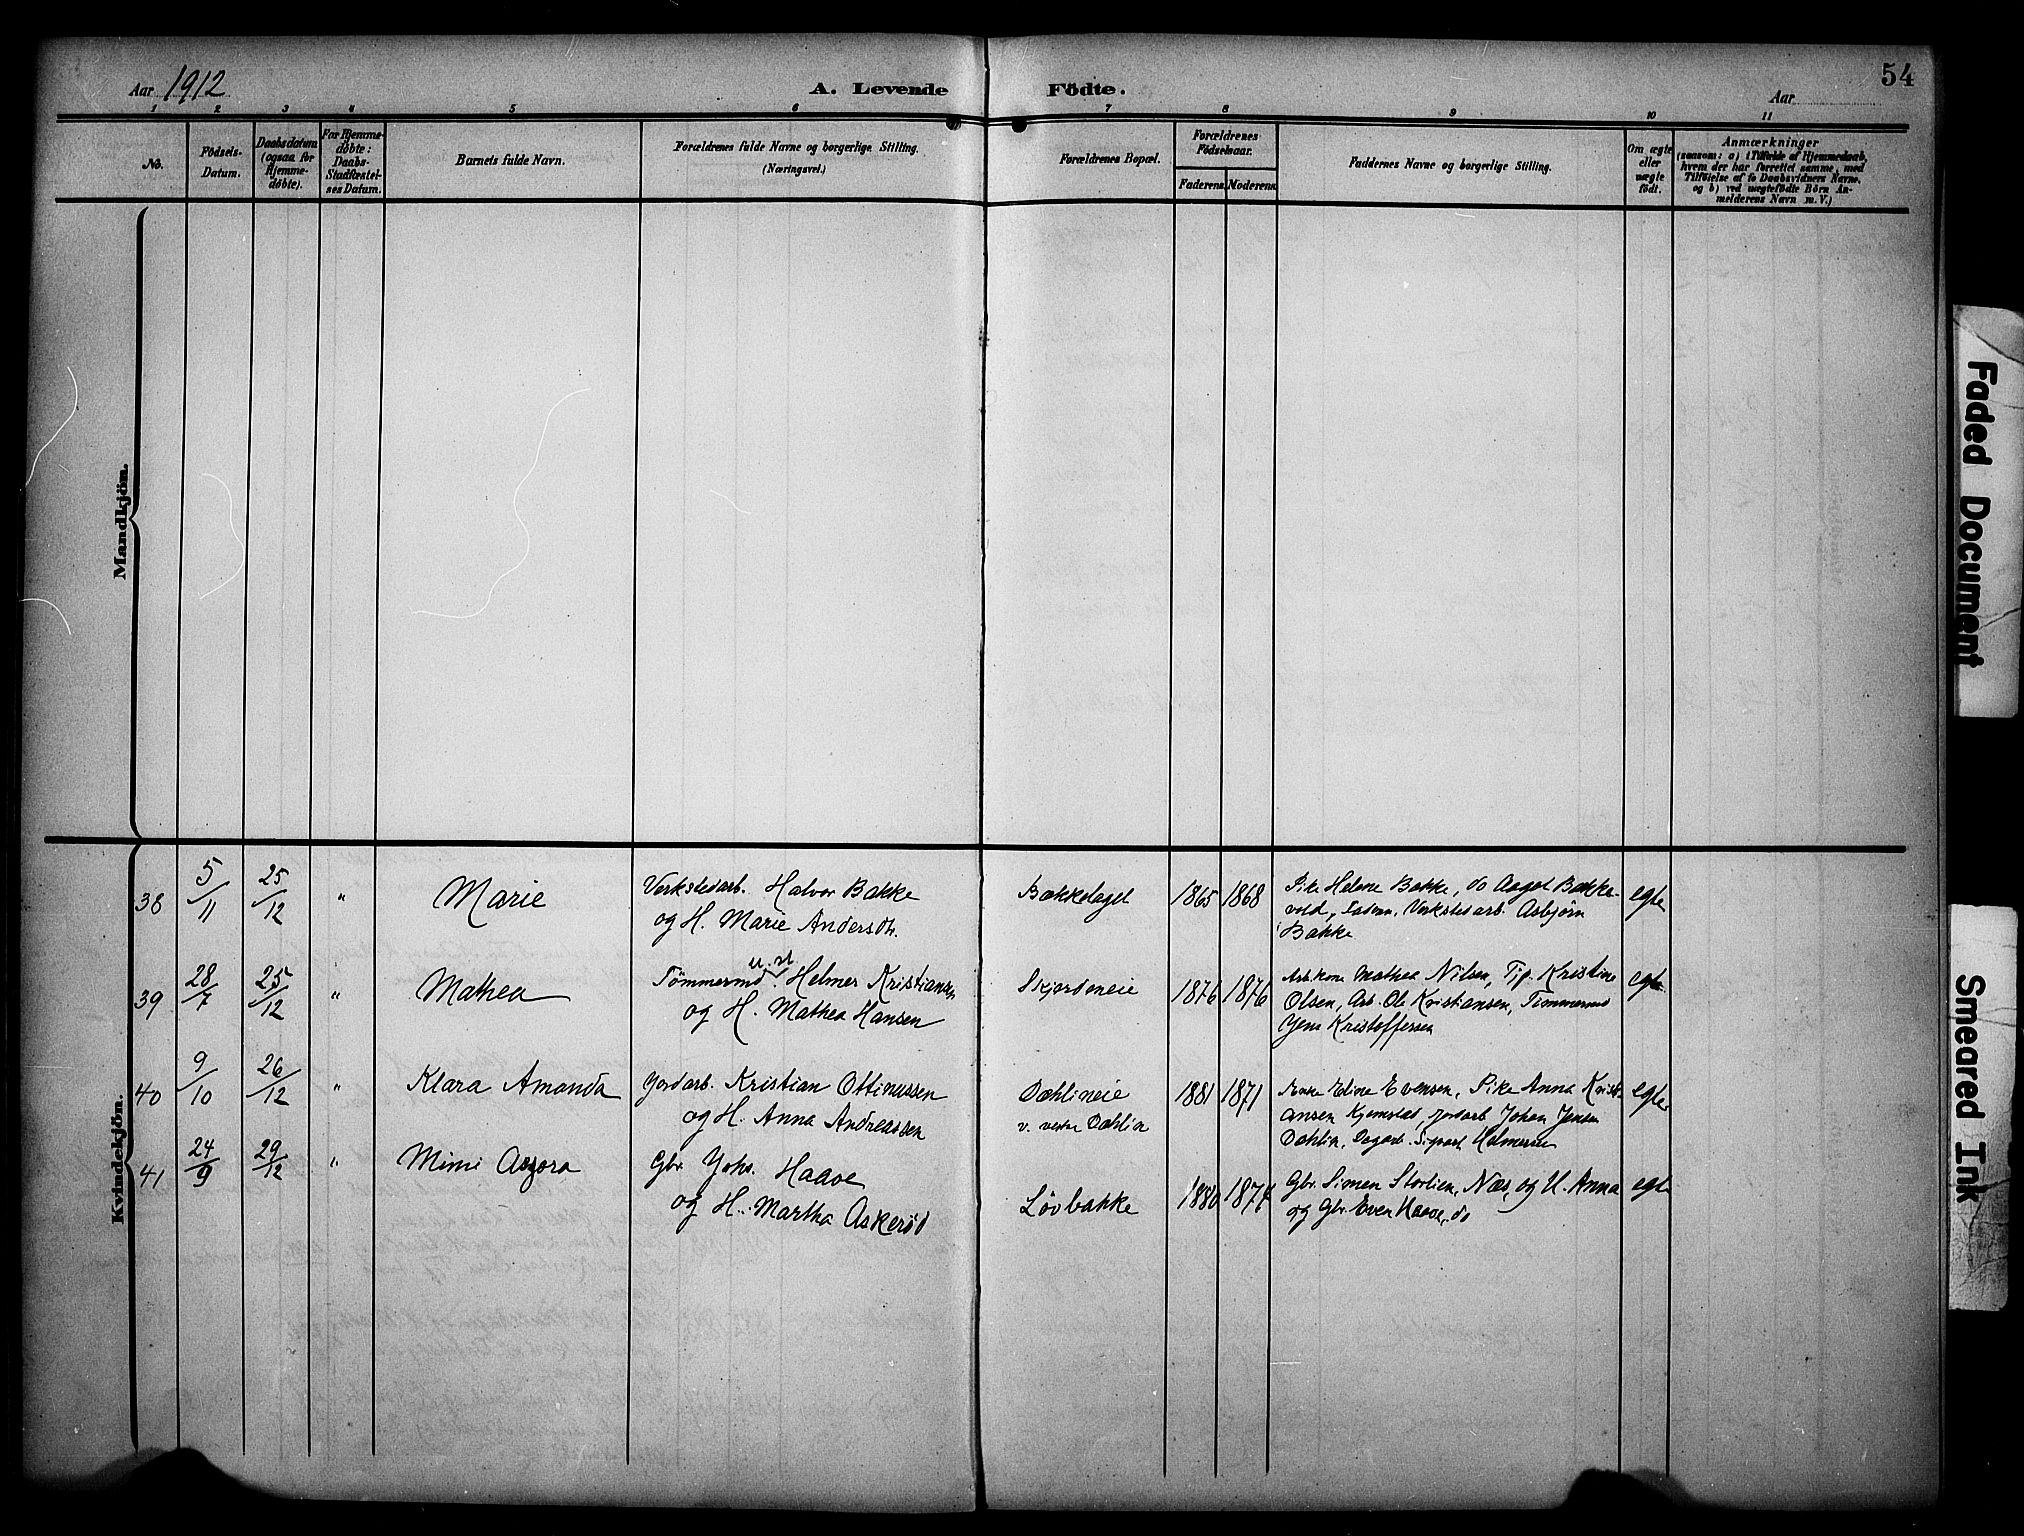 Aar 1912
A. Levende Födte.
Aar
54
1 2 3 4 5 6 7 8 9 10 11
No.
Födsels-
Datum.
Daabsdatum
(ogsaa for
Hjemme-
döbte).
For Hjemme-
döbte:
Daabs-
Stadfæstel-
ses Datum.
Barnets fulde Navn.
Forældrenes fulde Navne og borgerlige Stilling.
(Næringsvei.)
Forældrenes Bopæl.
Forældrenes
Födselsaar.
Faderens. Moderens.
Faddernes Navne og borgerlige Stilling.
Om ægte
eller
uægte
födt.
Anmærkninger
(saasom: a) i Tilfælde af Hjemmedaab,
hvem der har forrettet samme, med
Tilföielse af to Daabsvidners Navne,
og b) ved uægtefödte Börn An-
melderens Navn m. V.)
Mandkjön.
Kvindekjön.
38 5/11 25/12 " Marie
Verkstedarb. Halvor Bakke
og H. Marie Andersdtr.
Bækkelaget 1865 1868
Pike Helene Bakke, do Aagot Bakke-
vold, Verkstedarb. Asbjørn
Bakke
egte
39 28/7 25/12 " Mathea
Tømmermd. Helmer Kristiansen
og H. Mathea Hansen
Skjerdeneie 1876 1876
Arb.kone Mathea Nilsen, Tjp. Kristine
Olsen, Arb. Ole Kristiansen, Tømmermd
Jens Kristoffersen
egte
40 9/10 26/12 " Klara Amanda
Jordarb. Kristian Ottinussen
og H. Anna Andreassen
Dæhlineie
v. vestre Dæhlin
1881 1871
Enke Edine Evensen, Pike Anna Kristi-
ansen Kjemstad, jordarb Johan Jensen
Dæhlin, Dagarb. Sigvart Helmersen
egte
41 24/9 29/12 " Mimi Aszora
Gbr. Johs. Haave
og H. Martha Askerød
Løvbakke 1880 1876
Gbr. Simen Storlien, Næs, og H. Anna
og Gbr. Even Haave, do
egte
Faded Document
Smeared Ink